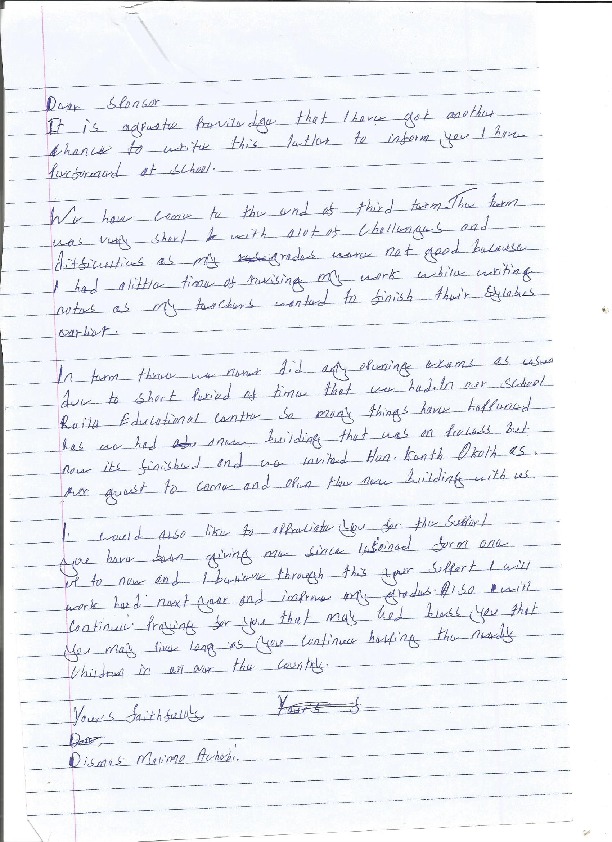 Dear Sponsor
It is agreate priviledge that I have got another
chance to write this letter to inform you I have
performed at school.
We have come to the end of third term. The term
was very short & with alot of challenges and
difficulties as my grades were not good because
I had alittle time of revising my work while writing
notes as my teachers wanted to finish their sylabus
earlier.
In term three we never did any opening exams as usual
due to short period of time that we had. In our school
Raila Educational Centre so many things have happened
has we had anew building that was on process but
now its finished and we invited Hon. Kenth Okoth as
our guest to come and open the new building with us.
I would also like to appreciate you for the support
you have been giving me since I joined form one
up to now and I believe through this your support I will
work hard next year and improve my grades. Also will
continue praying for you that may God bless you that
you may live long as you continue helping the needy
children in all over the country.
Yours faithfully Yours f
Dismas